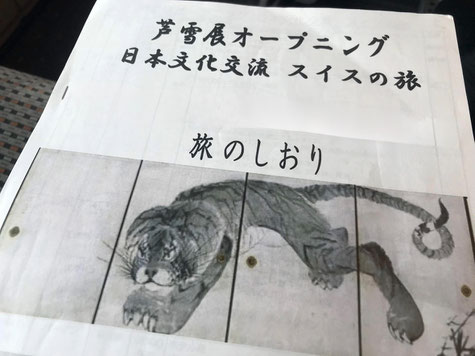 芦雪展オープニング
日本文化交流 スイスの旅
旅のしおり